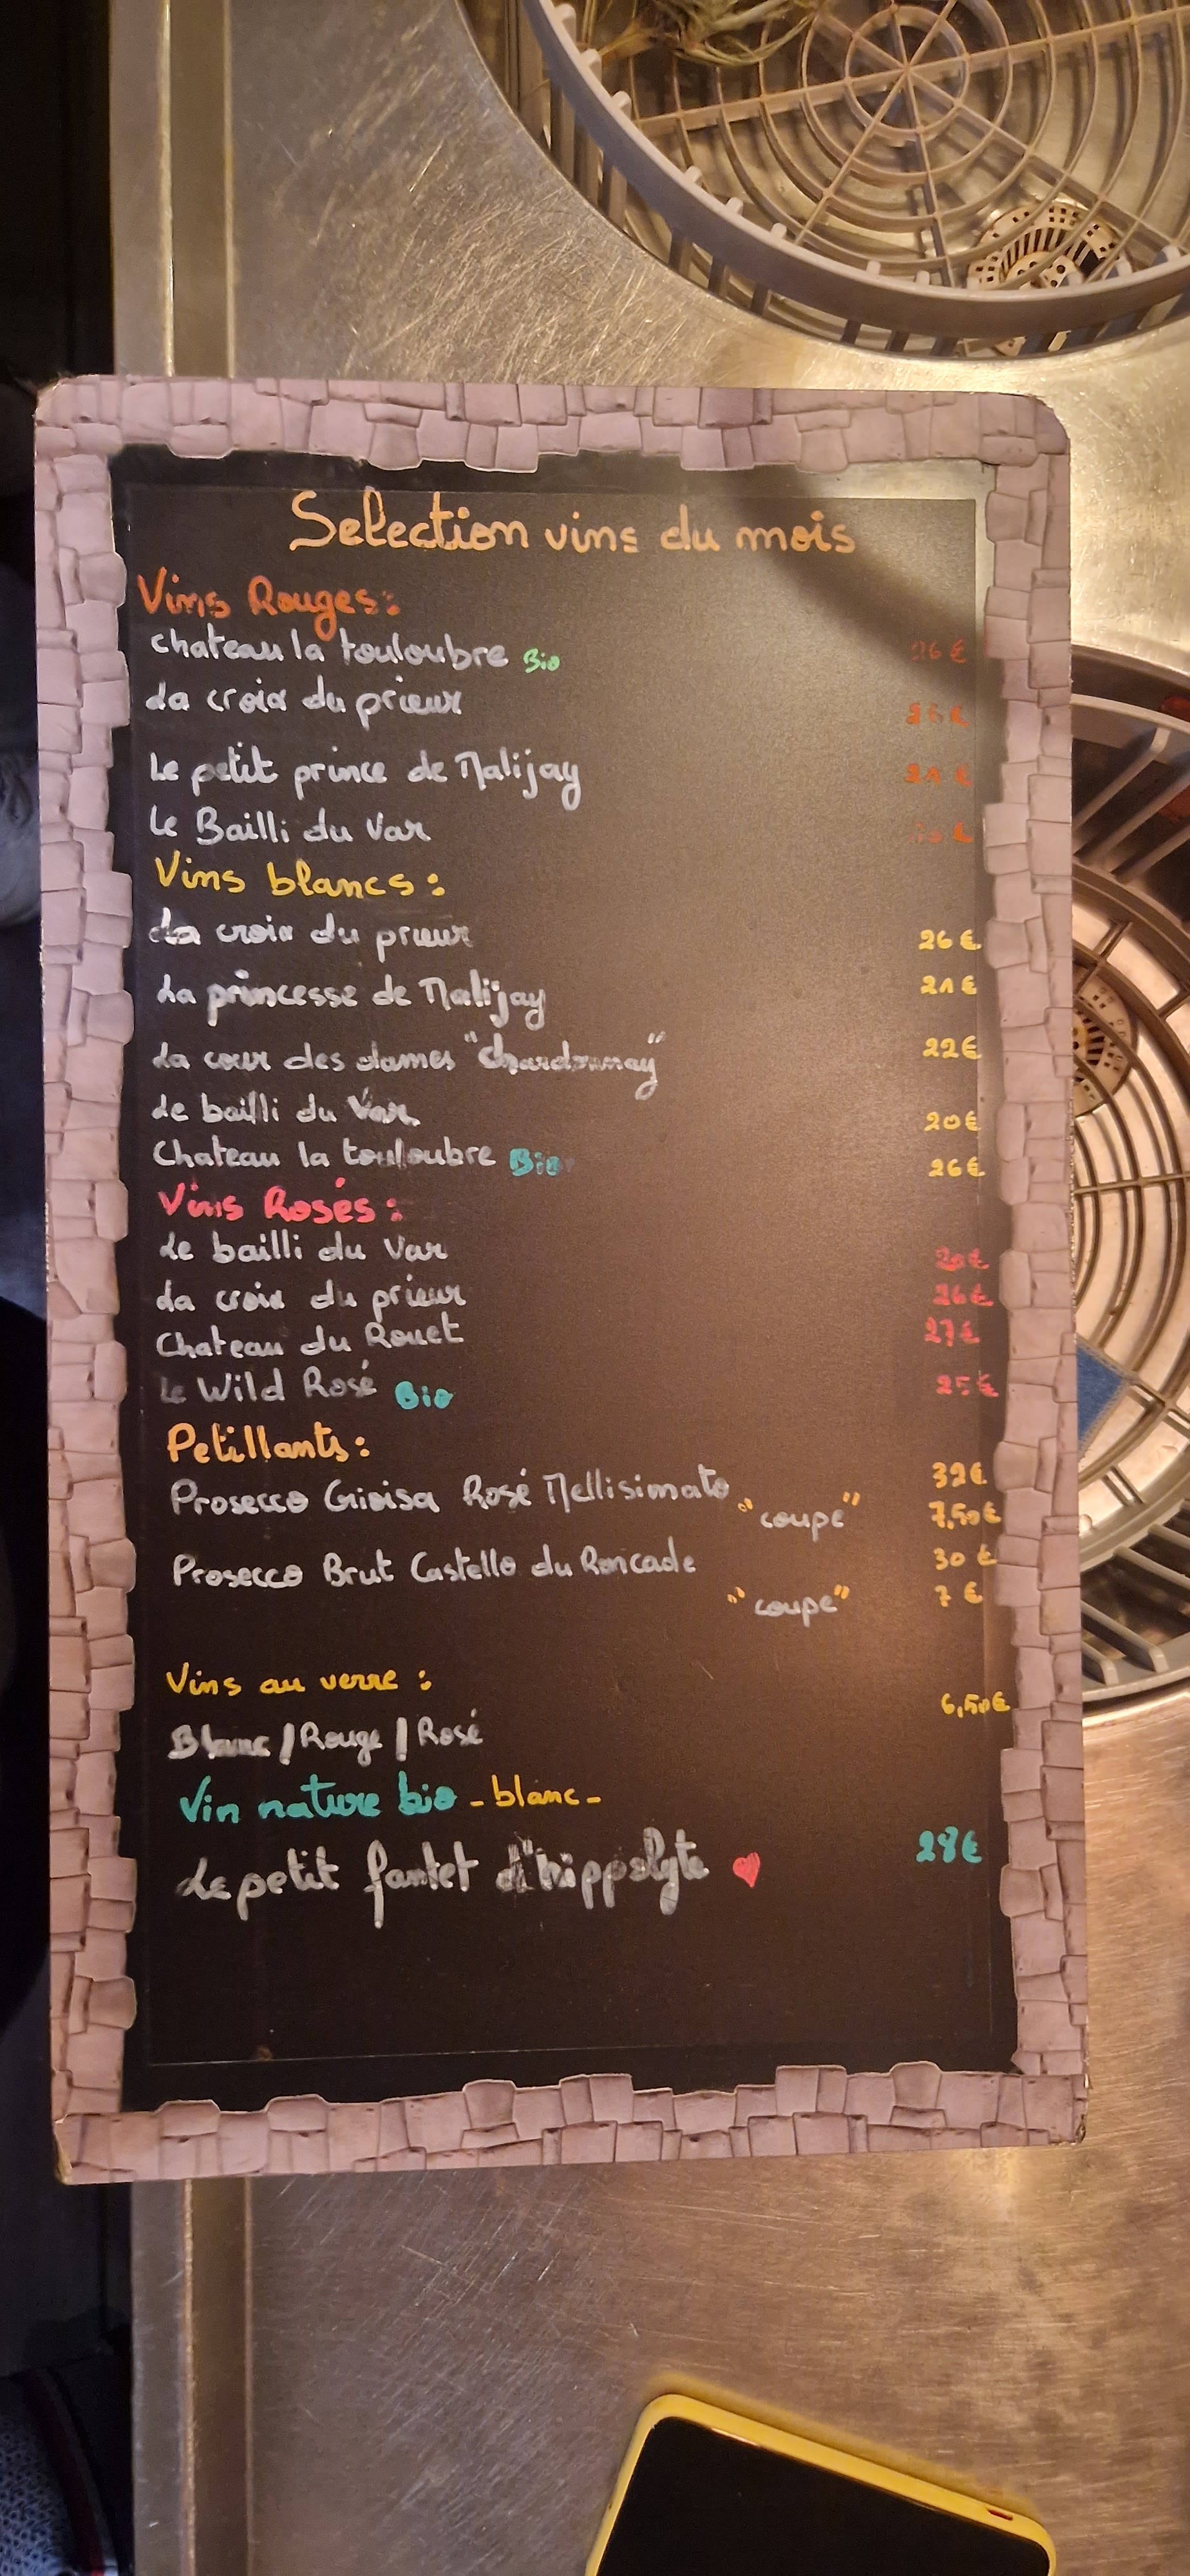 Selection vins du mois
Vins Rouges:
chateau la touloubre Bio 26€
La croix du prieur 26€
Le petit prince de Malijay 21€
Le Bailli du Var 20€
Vins blancs:
La croix du prieur 26€
La princesse de Malijay 21€
La cour des dames "Chardonnay" 22€
Le bailli du Var 20€
Chateau la touloubre Bio 26€
Vins Rosés:
Le bailli du Var 20€
La croix du prieur 26€
Chateau du Rouet 27€
Le Wild Rosé Bio 25€
Petillants:
Prosecco Gioisa Rosé Mellisimato 32€
"coupe" 7,50€
Prosecco Brut Castello du Roncade 30€
"coupe" 7€
Vins au verre:
Blanc/Rouge/Rosé 6,50€
Vin nature bio - blanc -
Le petit fantet d'hippolyte 28€